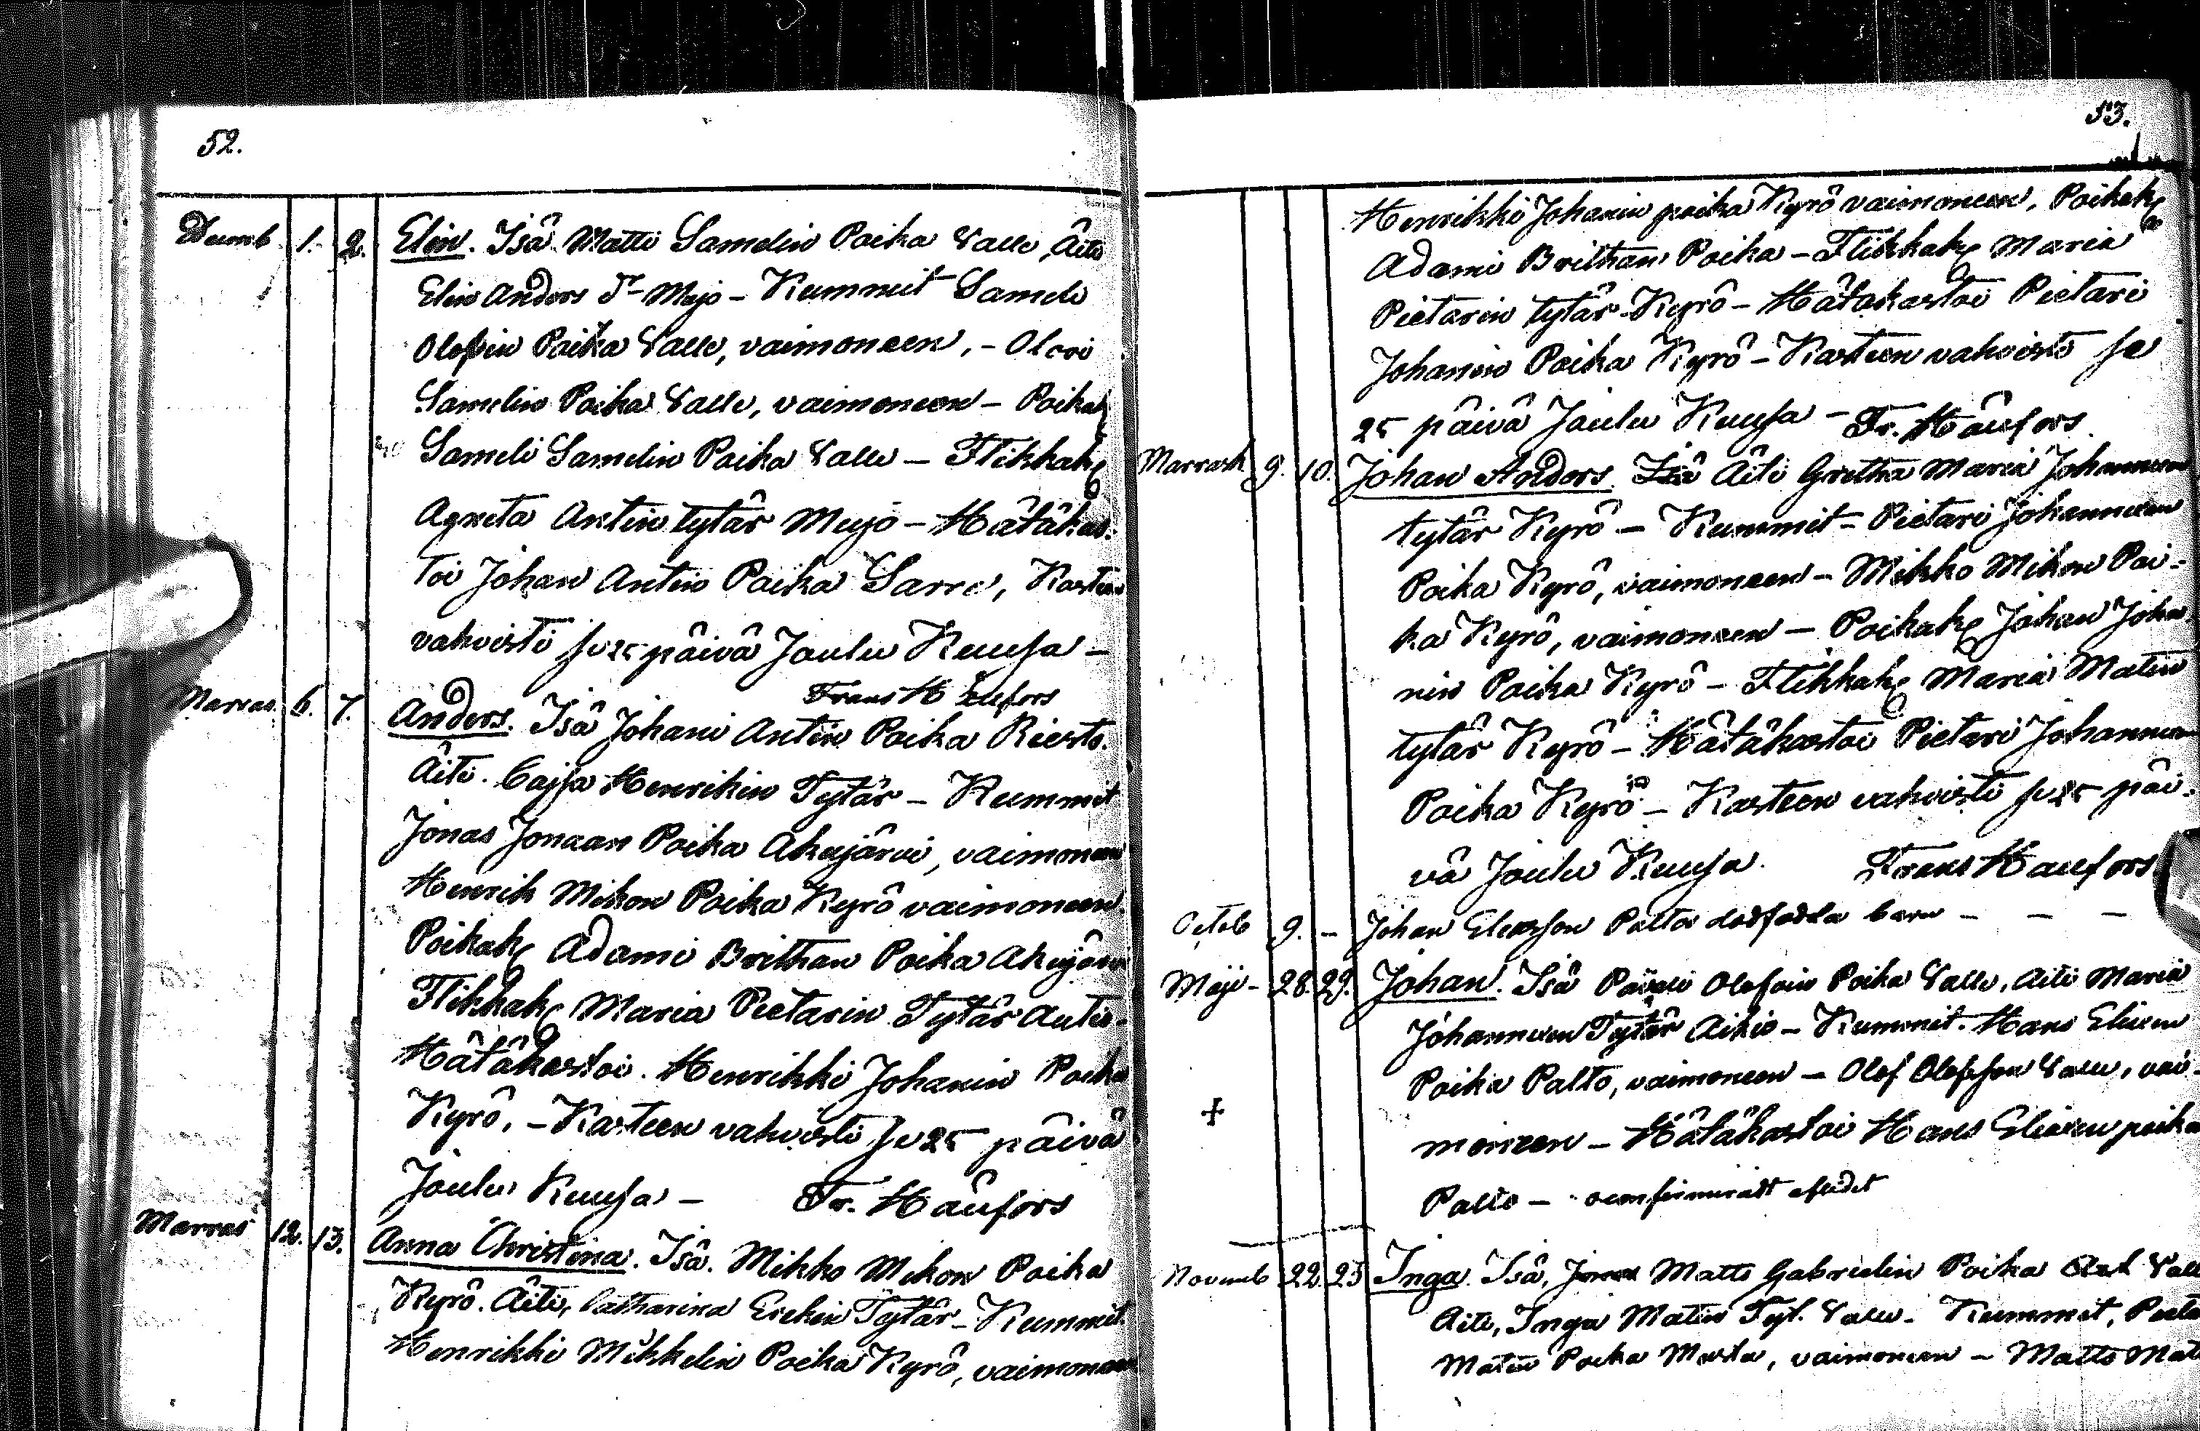 52.
Decemb. 1. 2. Elin. Isä Matti Samelin Poika Valle, Äiti
Elin Anders Tr Mujo - Kummit Sameli
Olefin Poika Valle, vaimoneen, - Olovi
Samelin Poika Valle, vaimoneen - Poika
Sameli Samelin Poika Valle - Flikkak
Agneta Antin tytär Mujo - Hätäkas:
toi Johan Antin Poika Sarre, Kasteen
vahvisti se 25 päivä Joulu Kuusa -
Frans Häufors
Marras 6. 7. Anders. Isä Johani Antin Poika Riesto.
Äiti. Cajsa Henrikin Tytär - Kummit
Jonas Jonaan Poika Akujärvi, vaimoneen
Henrik Mikon Poika Kyrö vaimoneen.
Poikak Adami Brithan Poika Akujärvi
Flikkak Maria Pietarin Tytär
Hätäkastoi. Henrikki Johanin Poika
Kyrö. - Kasteen vahvisti se 25 päivä
Joulu Kuusa - Fr. Häufors
Marras 12. 13. Anna Christina. Isä. Mikko Mikon Poika
Kyrö. Äiti, Catharina Erekin Tytär - Kummit.
Henrikki Mikkelin Poika Kyrö, vaimoneen
53.
Henrikki Johanin poika Kyrö vaimoneen, Poikak
Adami Brithan Poika - Flikkak Maria
Pietarin tytär Kyrö - Hätäkastoi Pietari
Johanin Poika Kyrö - Kasteen vahvisti se
25 päivä Joulu Kuusa - Fr. Häufors
Marrask 9. 10. Johan Anders. Isä Äiti Gretha Maria Johanneen
tytär Kyrö - Kummit - Pietari Johanneen
Poika Kyrö, vaimoneen - Mikko Mikon Poi-
ka Kyrö, vaimoneen - Poikak Johan Joha
nin Poika Kyrö - Flikkak Maria Matin
tytär Kyrö - Hätäkastoi Pietari Johanneen
Poika Kyrö - Kasteen vahvisti se 25 päi-
vä Joulu Kuusa. Frans Haufors
Octob 9. - Johan Eliasson Paltos dödfödda barn - - -
Maji - 28. 29. Johan. Isä Olofvin Poika Valle, Äiti Maria
Johanneen Tytär Aikio - Kummit. Hans Eliaen
Poika Palto, vaimoneen - Olof Olofsson Valle, vai-
moneen - Hätäkastoi Hans Eliaen poika
Palto - oconfirmeradt afledit
Novemb 22. 23 Inga. Isä, Matts Gabrielin Poika Valle
Äiti, Inga Matin Tyt. Valle - Kummit,
Matin Poika Morsta, vaimoneen - Matts